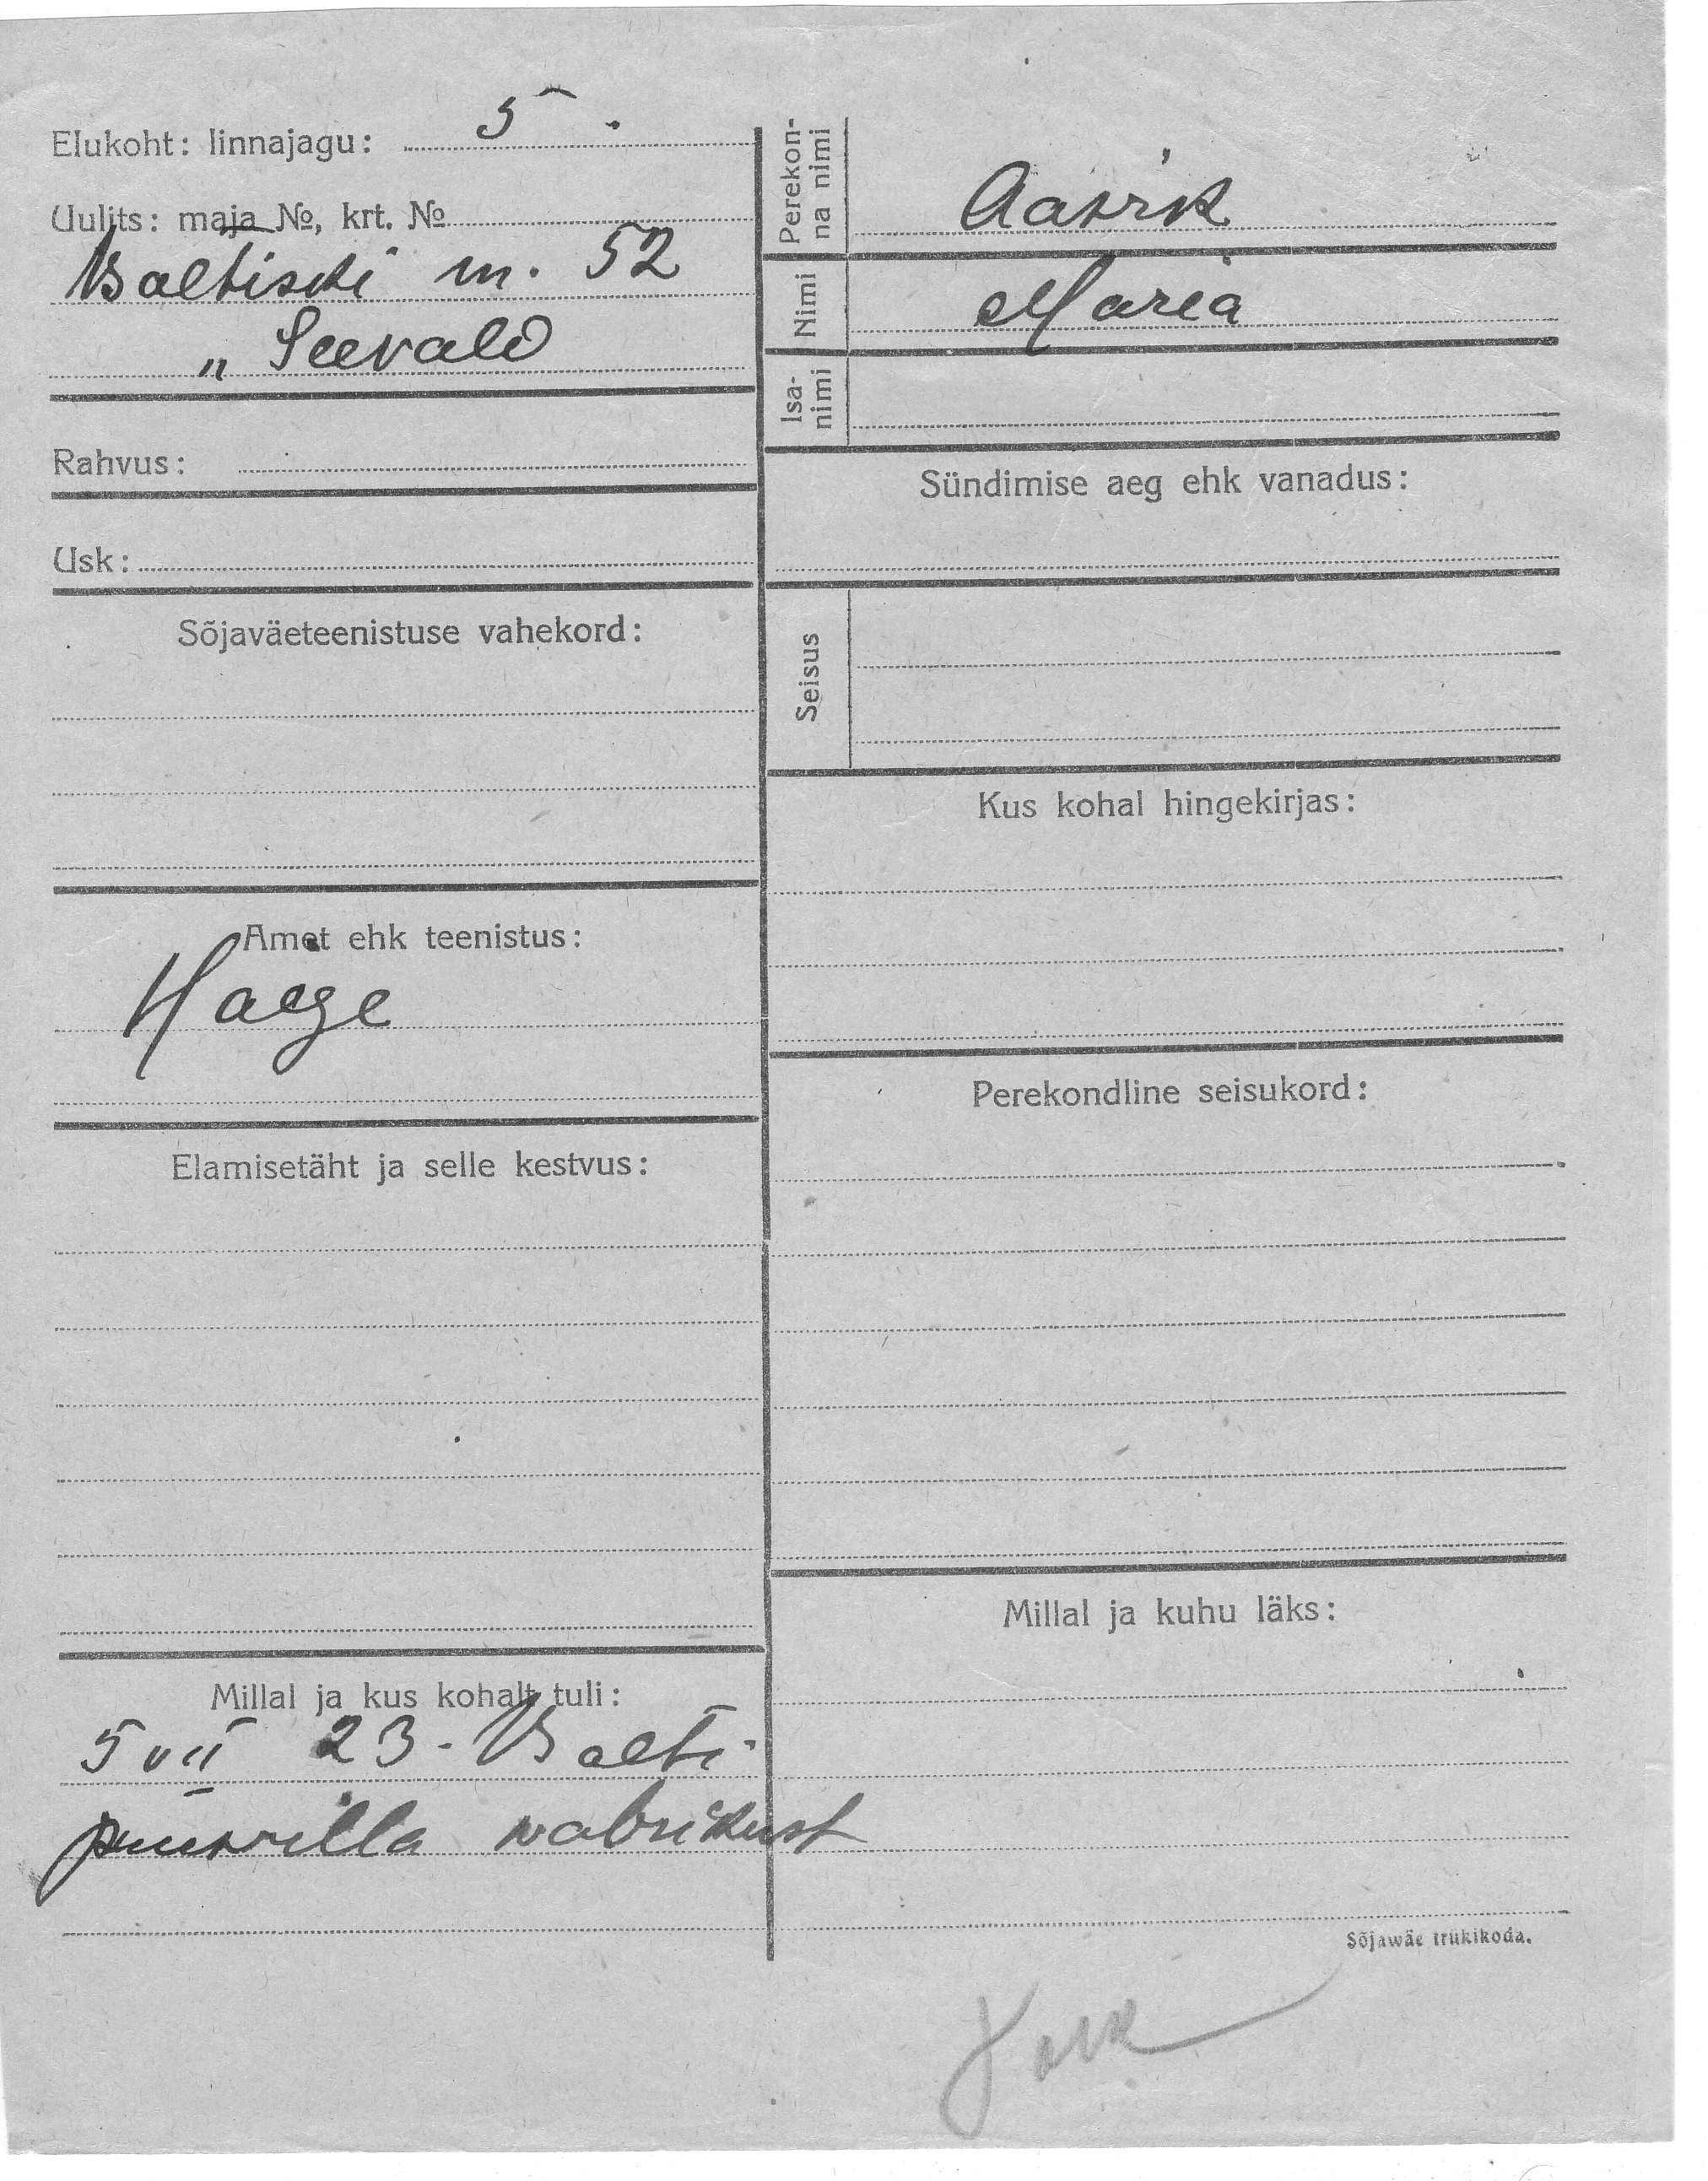 Elukoht: linnajagu: 5.
Uulits: maja №, krt. №
Baltiski m. 52
„ Seevald
Rahvus:
Usk:
Sõjaväeteenistuse vahekord:
Amet ehk teenistus:
Haige
Elamisetäht ja selle kestvus:
Millal ja kus kohalt tuli:
5 VII 23. Balti
puuvilla wabrikust
Perekon-
na nimi
Maria
Nimi
Isa-
nimi
Sündimise aeg ehk vanadus:
Seisus
Kus kohal hingekirjas:
Perekondline seisukord:
Millal ja kuhu läks:
Sõjawäe trükikoda.